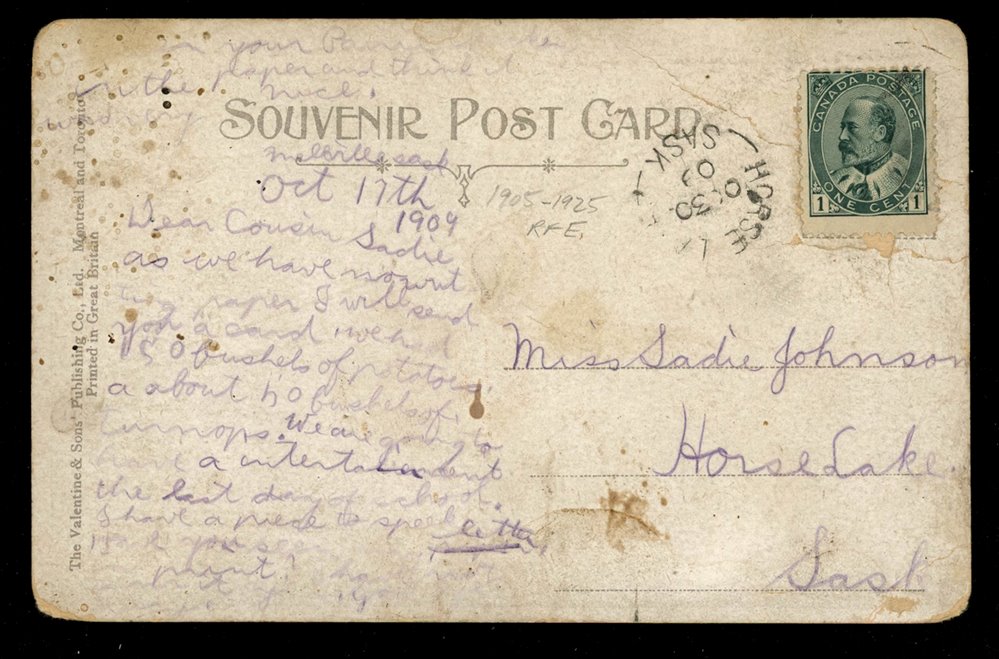 in your
paper and think it
in the nice.
very
SOUVENIR POST CARD
Melville Sask
Oct 17th
1909
Dear Cousin Sadie
as we have no writ
ting paper I will send
you a card we had
150 bushels of potatoes.
a about 50 bushels of
turnops. We are going to
have a entertainment
the last day of school.
I have a piece to speek
letter
you
print?
1905-1925
RFE.
HORSE
SASK
OC 30
09
CANADA POSTAGE
ONE CENT
1 1
Miss Sadie Johnson
Horse Lake.
Sask
The Valentine & Sons' Publishing Co., Ltd. Montreal and Toronto
Printed in Great Britain